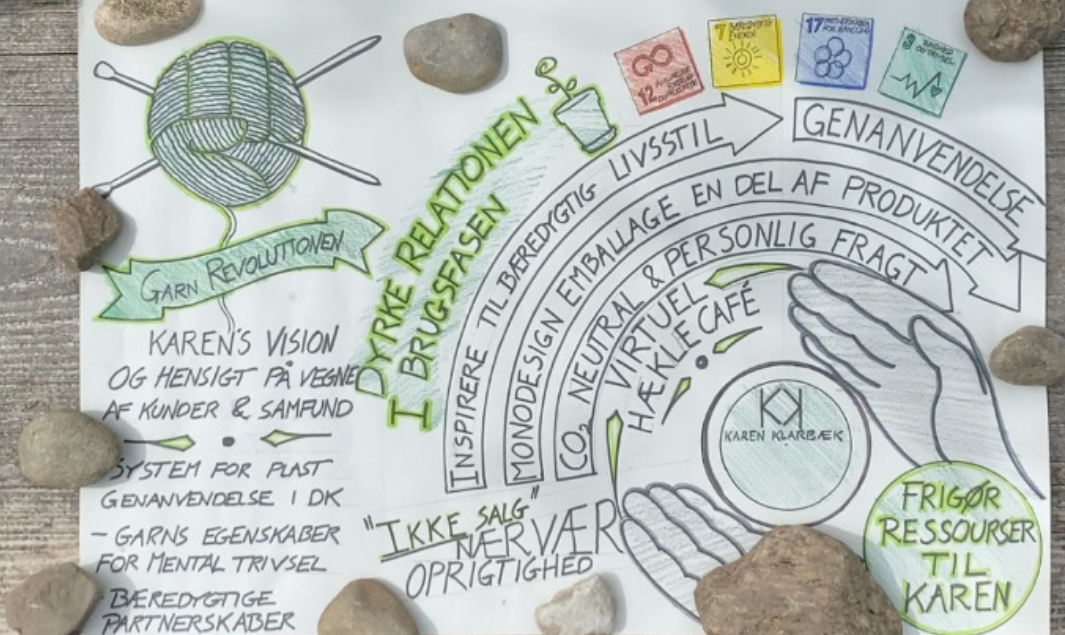 GARN REVOLUTIONEN
KAREN'S VISION
OG HENSIGT PÅ VEGNE
AF KUNDER & SAMFUND
SYSTEM FOR PLAST
GENANVENDELSE I DK
- GARNS EGENSKABER
FOR MENTAL TRIVSEL
BÆREDYGTIGE
PARTNERSKABER
DYRKE RELATIONEN
I BRUGSFASEN
12
7 BÆREDYGTIG
ENERGI
17 PARTNERSKABER
FOR HANDLING
3 SUNDHED
OG TRIVSEL
INSPIRERE TIL BÆREDYGTIG LIVSSTIL
GENANVENDELSE
MONODESIGN EMBALLAGE EN DEL AF PRODUKTET
CO2 NEUTRAL & PERSONLIG FRAGT
VIRTUEL
HÆKLE CAFÉ
KK
KAREN KLARBÆK
"IKKE SALG"
NÆRVÆR
OPRIGTIGHED
FRIGØR
RESSOURSER
TIL
KAREN